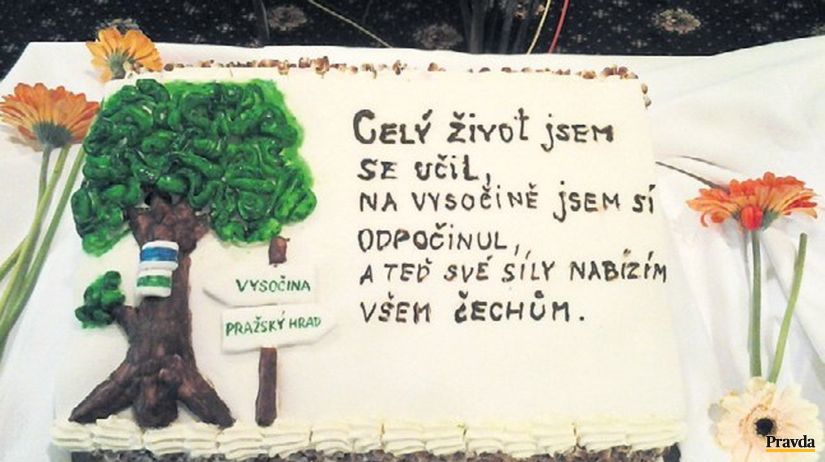 Celý život jsem
se učil,
na Vysočině jsem sí
odpočinul,
a teď své síly nabízím
všem čechům.
VYSOČINA
PRAŽSKÝ HRAD
Pravda